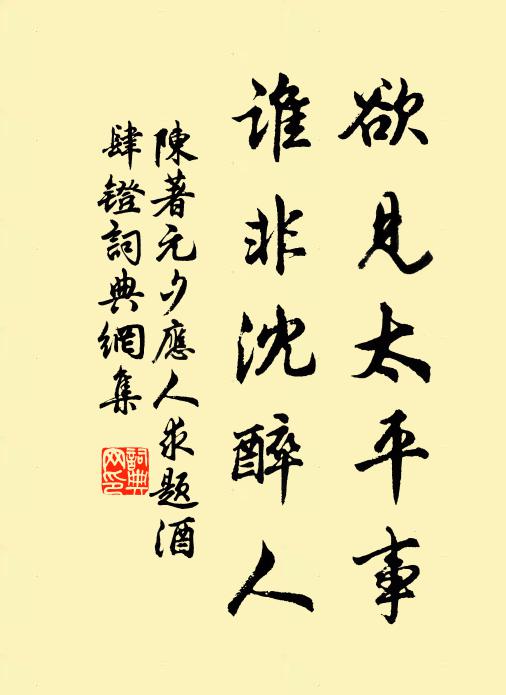 欲見太平事
誰非沈醉人
陳著元夕應人求題酒
肆鐙詞典網集
詞典網印